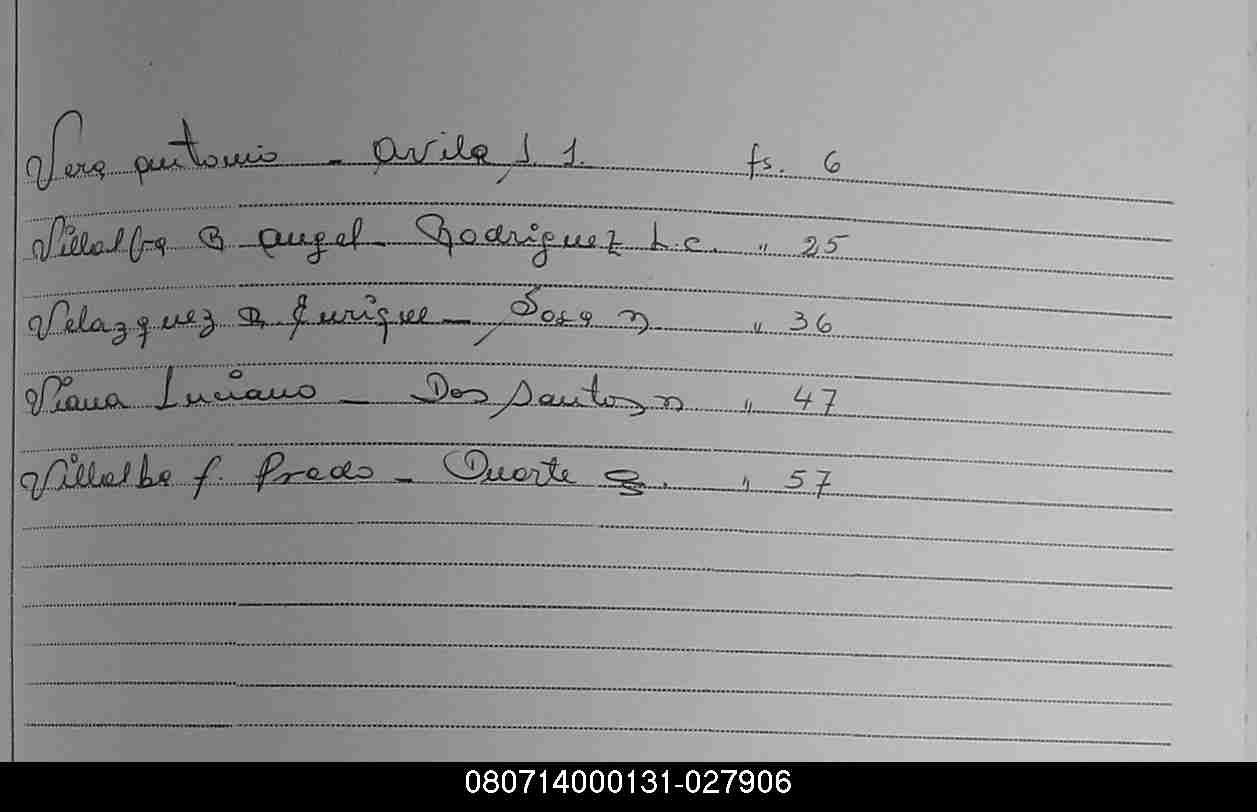 Vera Antonio - Avila J. 1. fs. 6
Villalba B Angel - Rodriguez L.C. " 25
Velazquez R Enrique - Sosa N " 36
Viana Luciano - Dos Santos N " 47
Villalba f. Prado - Duarte " 57
080714000131-027906